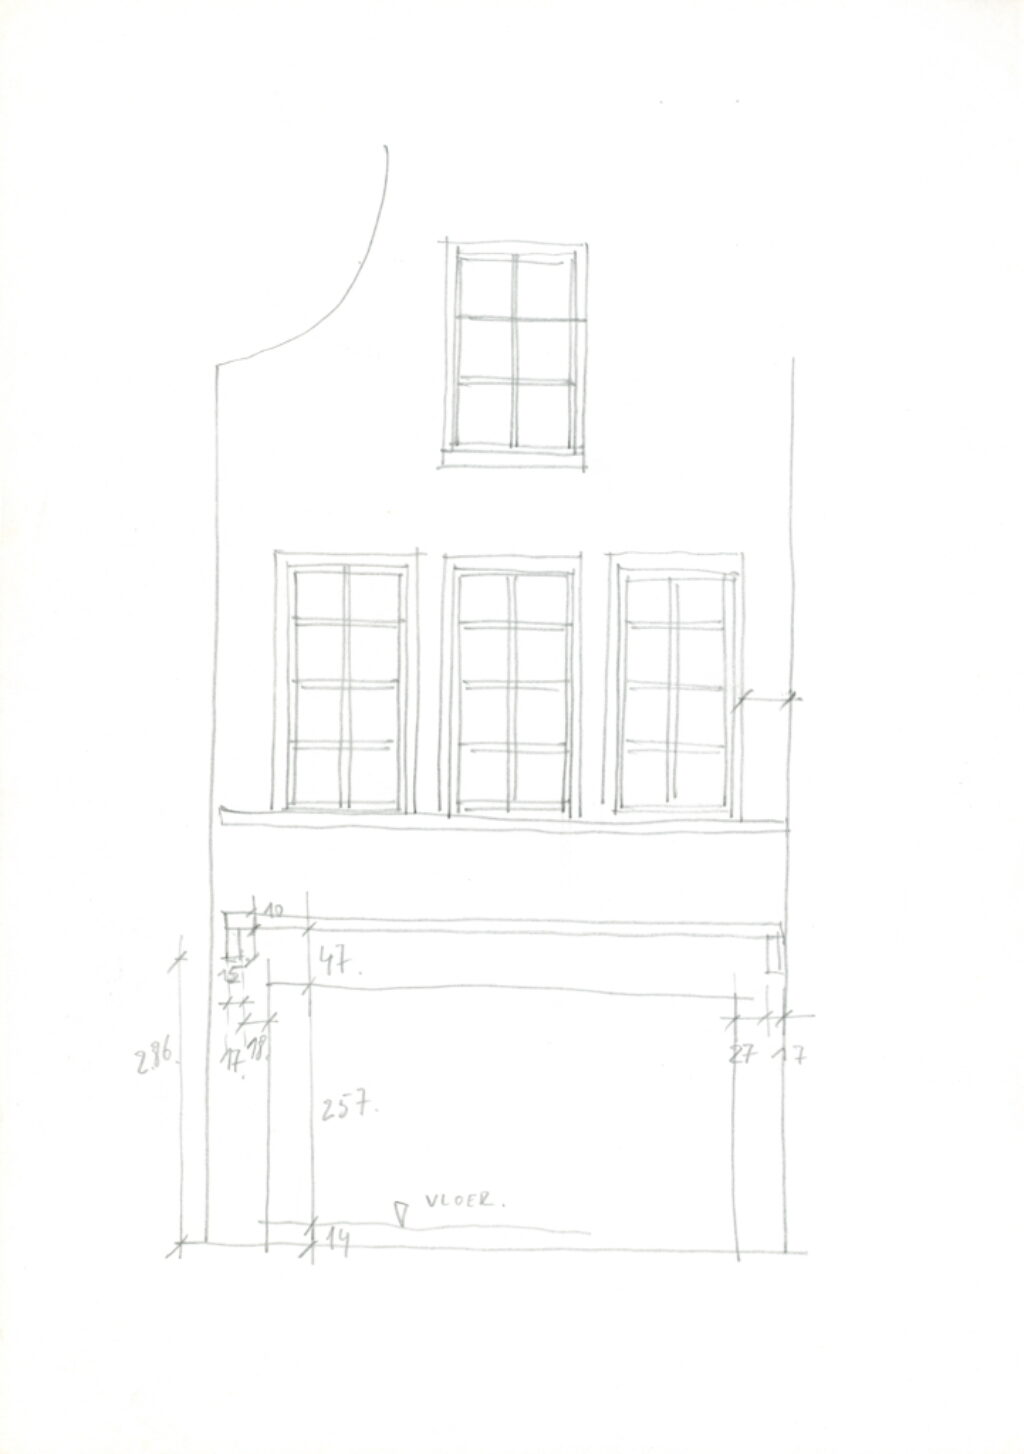 10
47.
15
286.
17.
18.
27
17
257.
VLOER.
14